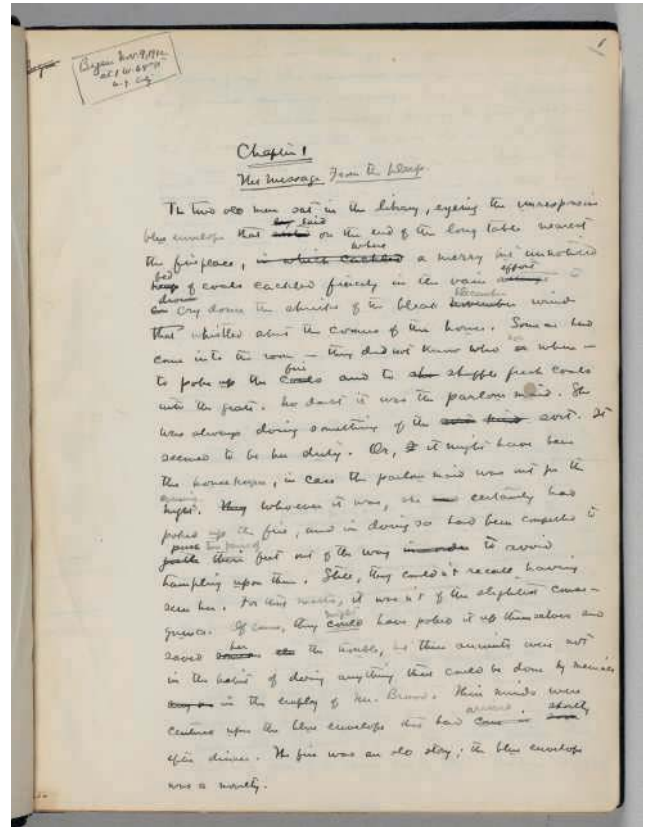 1
Begun Nov. 9, 1912
at 1 W. 68th
N.Y. City
Chapter 1
The Message From the
The two old men sat in the library, eyeing the unresponsive
blue envelope that lay on the end of the long table nearest
where
the fireplace, in which cackled a merry but unnoticed
bed effort
heap of coals cackled fiercely in the vain to
drown December
cry down the shrieks of the bleak November wind
that whistled about the corners of the house. Someone had
come into the room — they did not know who or when —
fire
to poke up the coals and to shuffle fresh coals
into the grate. No doubt it was the parlour maid. She
was always doing something of the sort. It
seemed to be her duty. Or, it might have been
the housekeeper, in case the parlour maid was out for the
evening
night. Whoever it was, she certainly had
poked up the fire, and in doing so had been compelled to
push two pairs of
their feet out of the way in order to avoid
trampling upon them. Still, they couldn't recall having
seen her. For that matter, it wasn't of the slightest conse-
might
quence. Of course, they could have poked it up themselves and
her
saved the trouble, but these ancients were not
in the habit of doing anything that could be done by menials
in the employ of Mr. Brood. Their minds were
arrived shortly
centered upon the blue envelope that had come in soon
after dinner. The fire was an old story; the blue envelope
was a novelty.